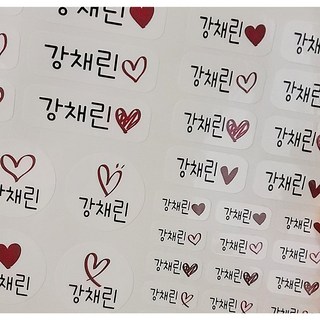 강채린
강채린
강채린
강채린
강채린
강채린
강채린
강채린
강채린
강채린
강채린
강채린
강채린
강채린
강채린
강채린
강채린
강채린
강채린
강채린